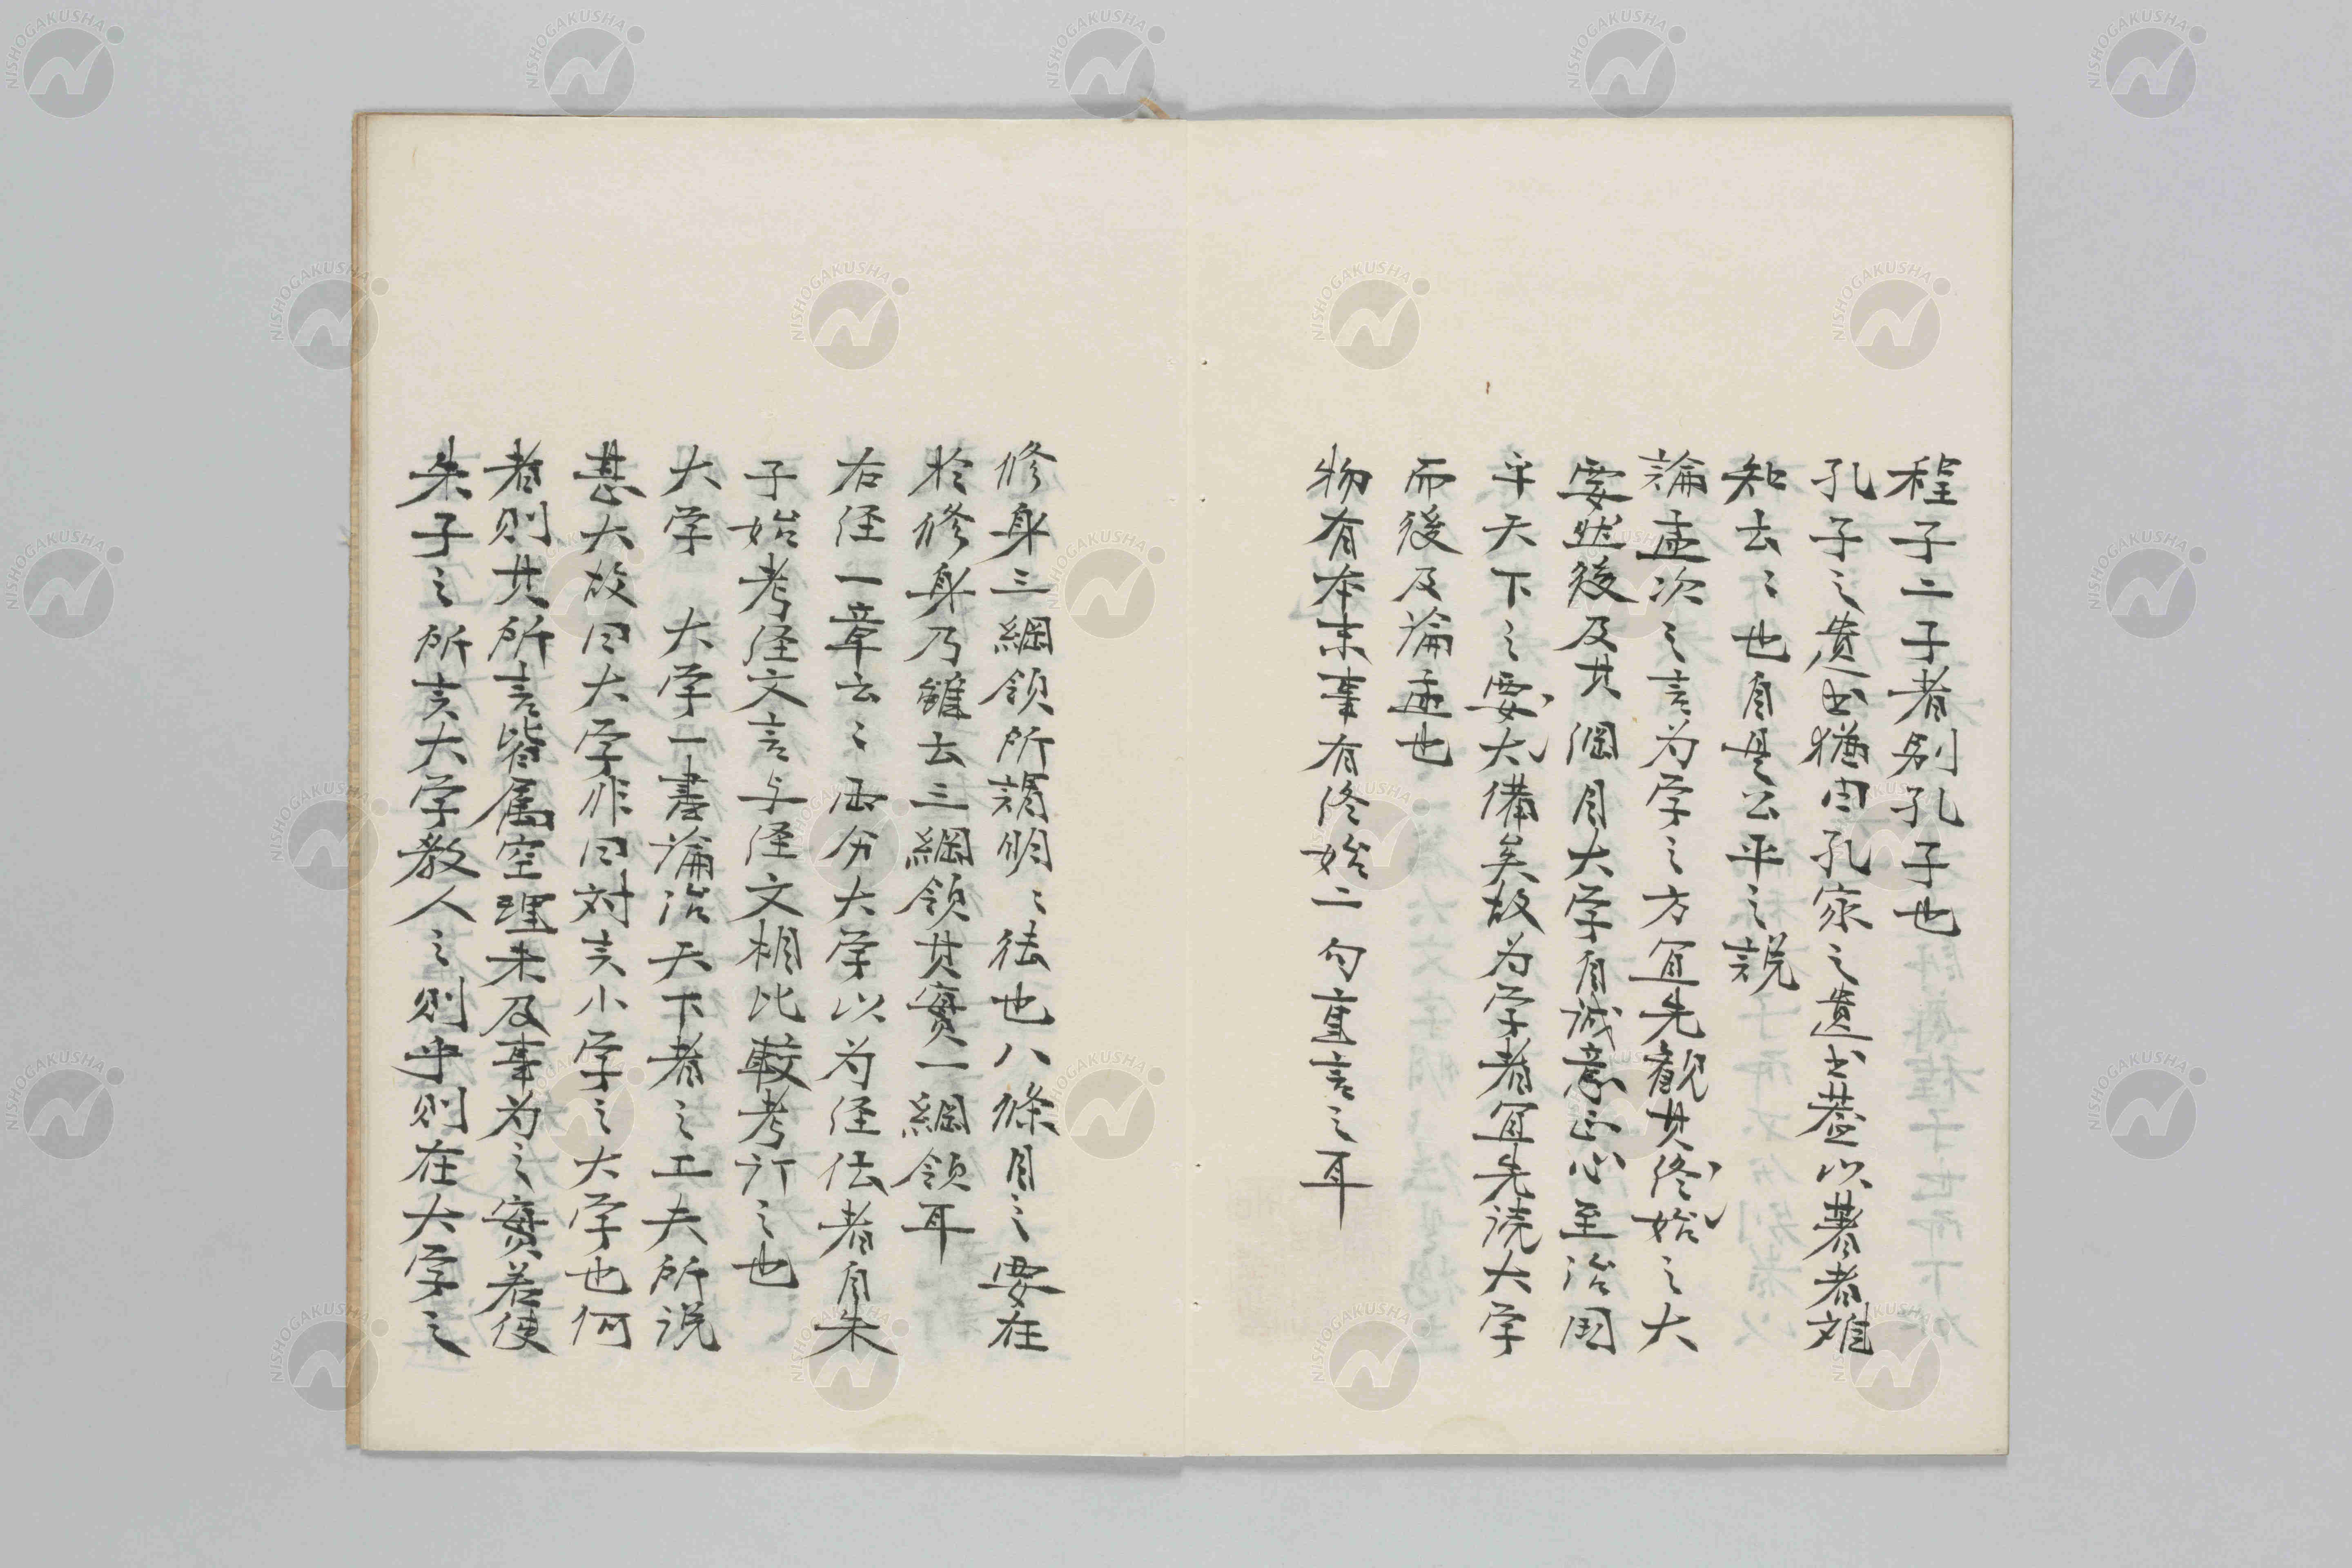 程子二子者別孔子也
孔子之遺書猶曰孔家之遺書蓋以著者難
知云々也自是公平之說
論孟次之言為学之方宜先観其終始之大
要然後及其綱目大学自誠意正心至治国
平天下之要大備矣故为学者宜先読大学
而後及論孟也
物有本末事有終始二句直言之耳
修身三綱領所謂明々法也八條目之要在
於修身乃雖云三綱領其實一綱領耳
右径一章云々而分大学以为径伝者自朱
子始考径文言与径文相比較考訂之也
大学 大学一書論治天下者之工夫所说
甚大故曰大学非曰対言小学之大学也何
者則其所言皆属空理未及事为之實若使
朱子之所言大学教人之則乎則在大学之
NISHOGAKUSHA